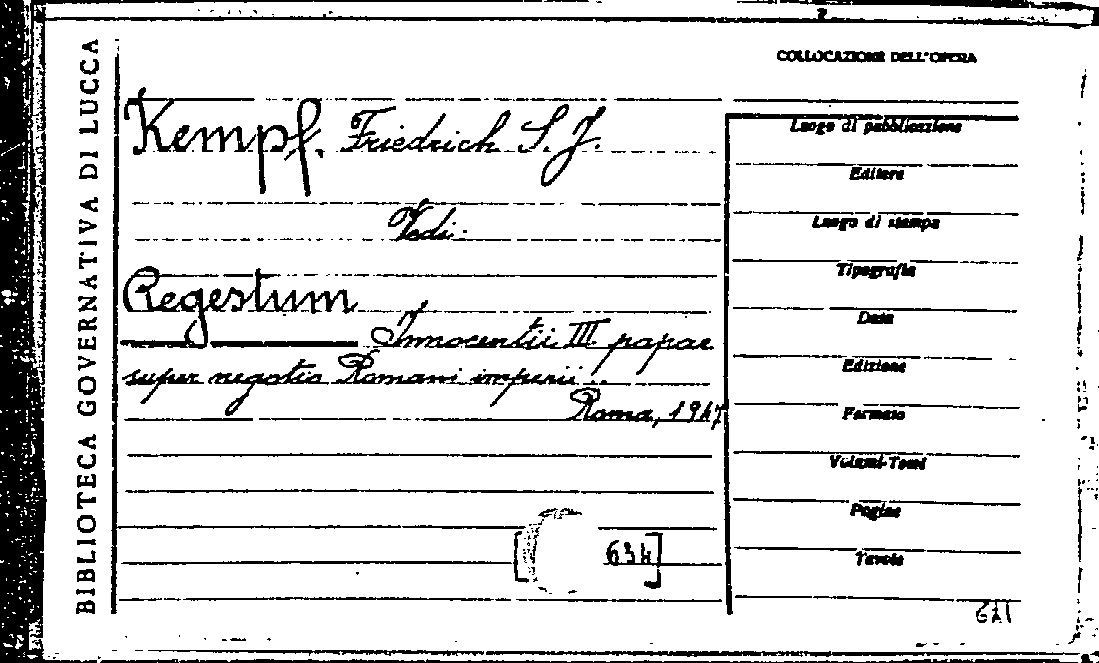 BIBLIOTECA GOVERNATIVA DI LUCCA
COLLOCAZIONE DELL'OPERA
Kempf, Friedrich S. J.
Vedi:
Regestum
Innocentii III papae
super negotio Romani imperii...
Roma, 1947
[634]
Luogo di pubblicazione
Editore
Luogo di stampa
Tipografia
Data
Edizione
Formato
Volumi-Tomi
Pagine
Tavole
621